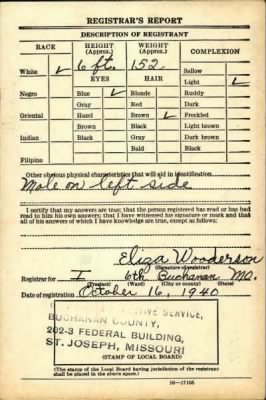 REGISTRAR'S REPORT
DESCRIPTION OF REGISTRANT
RACE HEIGHT (Approx.) WEIGHT (Approx.) COMPLEXION
White ✓ 6 ft. 152 Sallow
EYES HAIR Light ✓
Negro Blue ✓ Blonde Ruddy
Gray Red Dark
Oriental Hazel Brown ✓ Freckled
Brown Black Light brown
Indian Black Gray Dark brown
Bald Black
Filipino
Other obvious physical characteristics that will aid in identification
Mole on left side
I certify that my answers are true; that the person registered has read or has had
read to him his own answers; that I have witnessed his signature or mark and that
all of his answers of which I have knowledge are true, except as follows:
Eliza Wooderson
(Signature of registrar)
Registrar for I 6th Buchanan MO.
(Precinct) (Ward) (City or county) (State)
Date of registration October 16, 1940
SERVICE,
BUCHANAN COUNTY,
202-3 FEDERAL BUILDING,
ST. JOSEPH, MISSOURI
(STAMP OF LOCAL BOARD)
(The stamp of the Local Board having jurisdiction of the registrant
shall be placed in the above space.)
16—17105